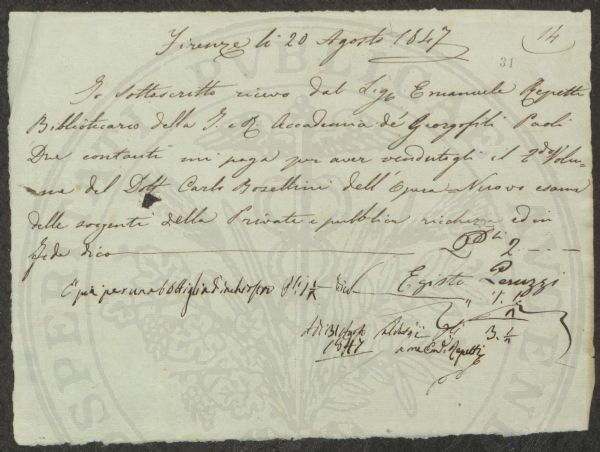 14
Firenze li 20 Agosto 1847
31
Io sottoscritto ricevo dal Sigr Emanuele Repetti
Bibliotecario della I. e R. Accademia de' Georgofili Paoli
Due contanti mi paga per aver vendutogli il 2do Volu-
me del Dott. Carlo Bosellini dell'Opera Nuovo esame
delle sorgenti della Privata e pubblica ricchezza ed in
fede dico Pli 2
E più per una bottiglia d'inchiostro Pli 1 1/2 Egisto Peruzzi
" 1. 1/2
3. 1/2
A dì 31 Agosto
1847 a me Eml Repetti